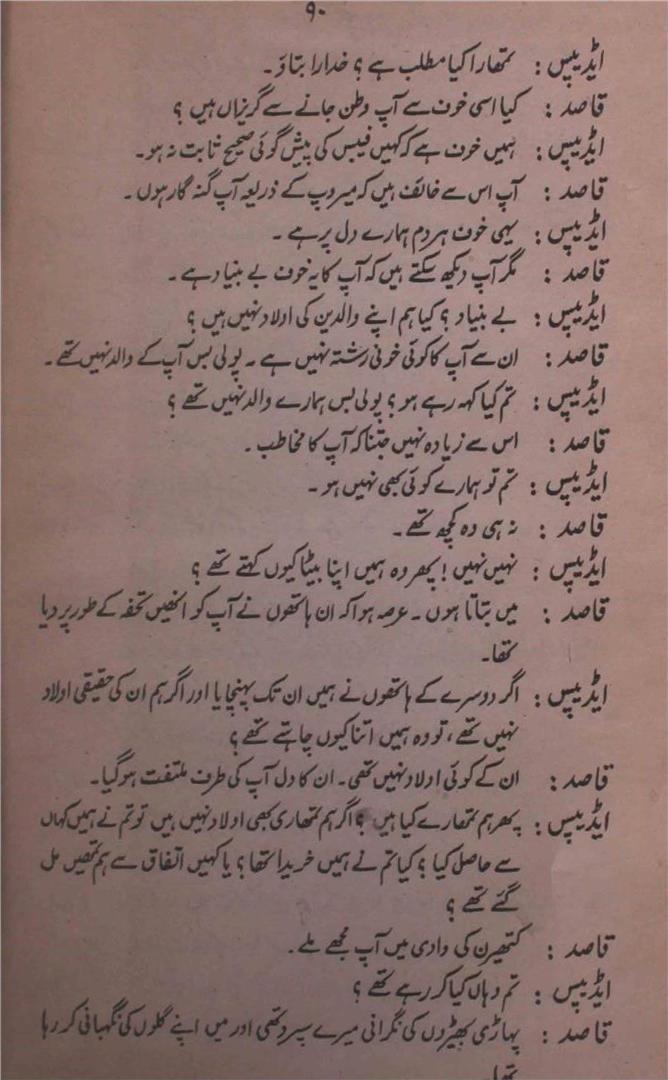 ۹۰
ایڈیپس : تمھارا کیا مطلب ہے ؟ خدارا بتاؤ ۔
قاصد : کیا اسی خوف سے آپ وطن جانے سے گریزاں ہیں ؟
ایڈیپس : ہمیں خوف ہے کہ کہیں فیبس کی پیش گوئی صحیح ثابت نہ ہو ۔
قاصد : آپ اس سے خائف ہیں کہ میروپ کے ذریعہ آپ گنہ گار ہوں ۔
ایڈیپس : یہی خوف ہر دم ہمارے دل پر ہے ۔
قاصد : مگر آپ دیکھ سکتے ہیں کہ آپ کا یہ خوف بے بنیاد ہے ۔
ایڈیپس : بے بنیاد ؟ کیا ہم اپنے والدین کی اولاد نہیں ہیں ؟
قاصد : ان سے آپ کا کوئی خونی رشتہ نہیں ہے ۔ پولی بس آپ کے والد نہیں تھے ۔
ایڈیپس : تم کیا کہہ رہے ہو ؟ پولی بس ہمارے والد نہیں تھے ؟
قاصد : اس سے زیادہ نہیں جتنا کہ آپ کا مخاطب ۔
ایڈیپس : تم تو ہمارے کوئی بھی نہیں ہو ۔
قاصد : نہ ہی وہ کچھ تھے ۔
ایڈیپس : نہیں نہیں ! پھر وہ ہمیں اپنا بیٹا کیوں کہتے تھے ؟
قاصد : میں بتاتا ہوں ۔ عرصہ ہوا کہ ان ہاتھوں نے آپ کو انھیں تحفہ کے طور پر دیا
تھا ۔
ایڈیپس : اگر دوسرے کے ہاتھوں نے ہمیں ان تک پہنچایا اور اگر ہم ان کی حقیقی اولاد
نہیں تھے ، تو وہ ہمیں اتنا کیوں چاہتے تھے ؟
قاصد : ان کے کوئی اولاد نہیں تھی ۔ ان کا دل آپ کی طرف ملتفت ہوگیا ۔
ایڈیپس : پھر ہم تمھارے کیا ہیں ؟ اگر ہم تمھاری بھی اولاد نہیں ہیں تو تم نے ہمیں کہاں
سے حاصل کیا ؟ کیا تم نے ہمیں خریدا تھا ؟ یا کہیں اتفاق سے ہم تمھیں مل
گئے تھے ؟
قاصد : کتھیرن کی وادی میں آپ مجھے ملے ۔
ایڈیپس : تم وہاں کیا کر رہے تھے ؟
قاصد : پہاڑی بھیڑوں کی نگرانی میرے سپرد تھی اور میں اپنے گلوں کی نگہبانی کر رہا
تھا